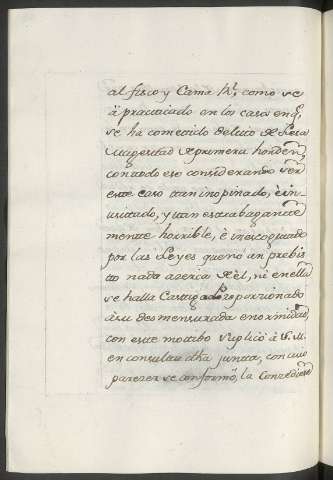 al fisco y Cama Rl. como se
à practicado en los casos enq.
se ha cometido delito de Lesa
Magestad de primera horden,
con todo eso considerando ser
este caso tan inopinado, è in-
usitado, y tan estrabagante
mente horrible, è inescogitado
por las Leyes que no an prebis
to nada acerca de èl, ni en ellas
se halla Castigo proporzionado
à su desmensurada enormidad,
con este motibo suplicò à V.M.
en consulta dha junta, con cuio
parezer se conformò, la Conzediese